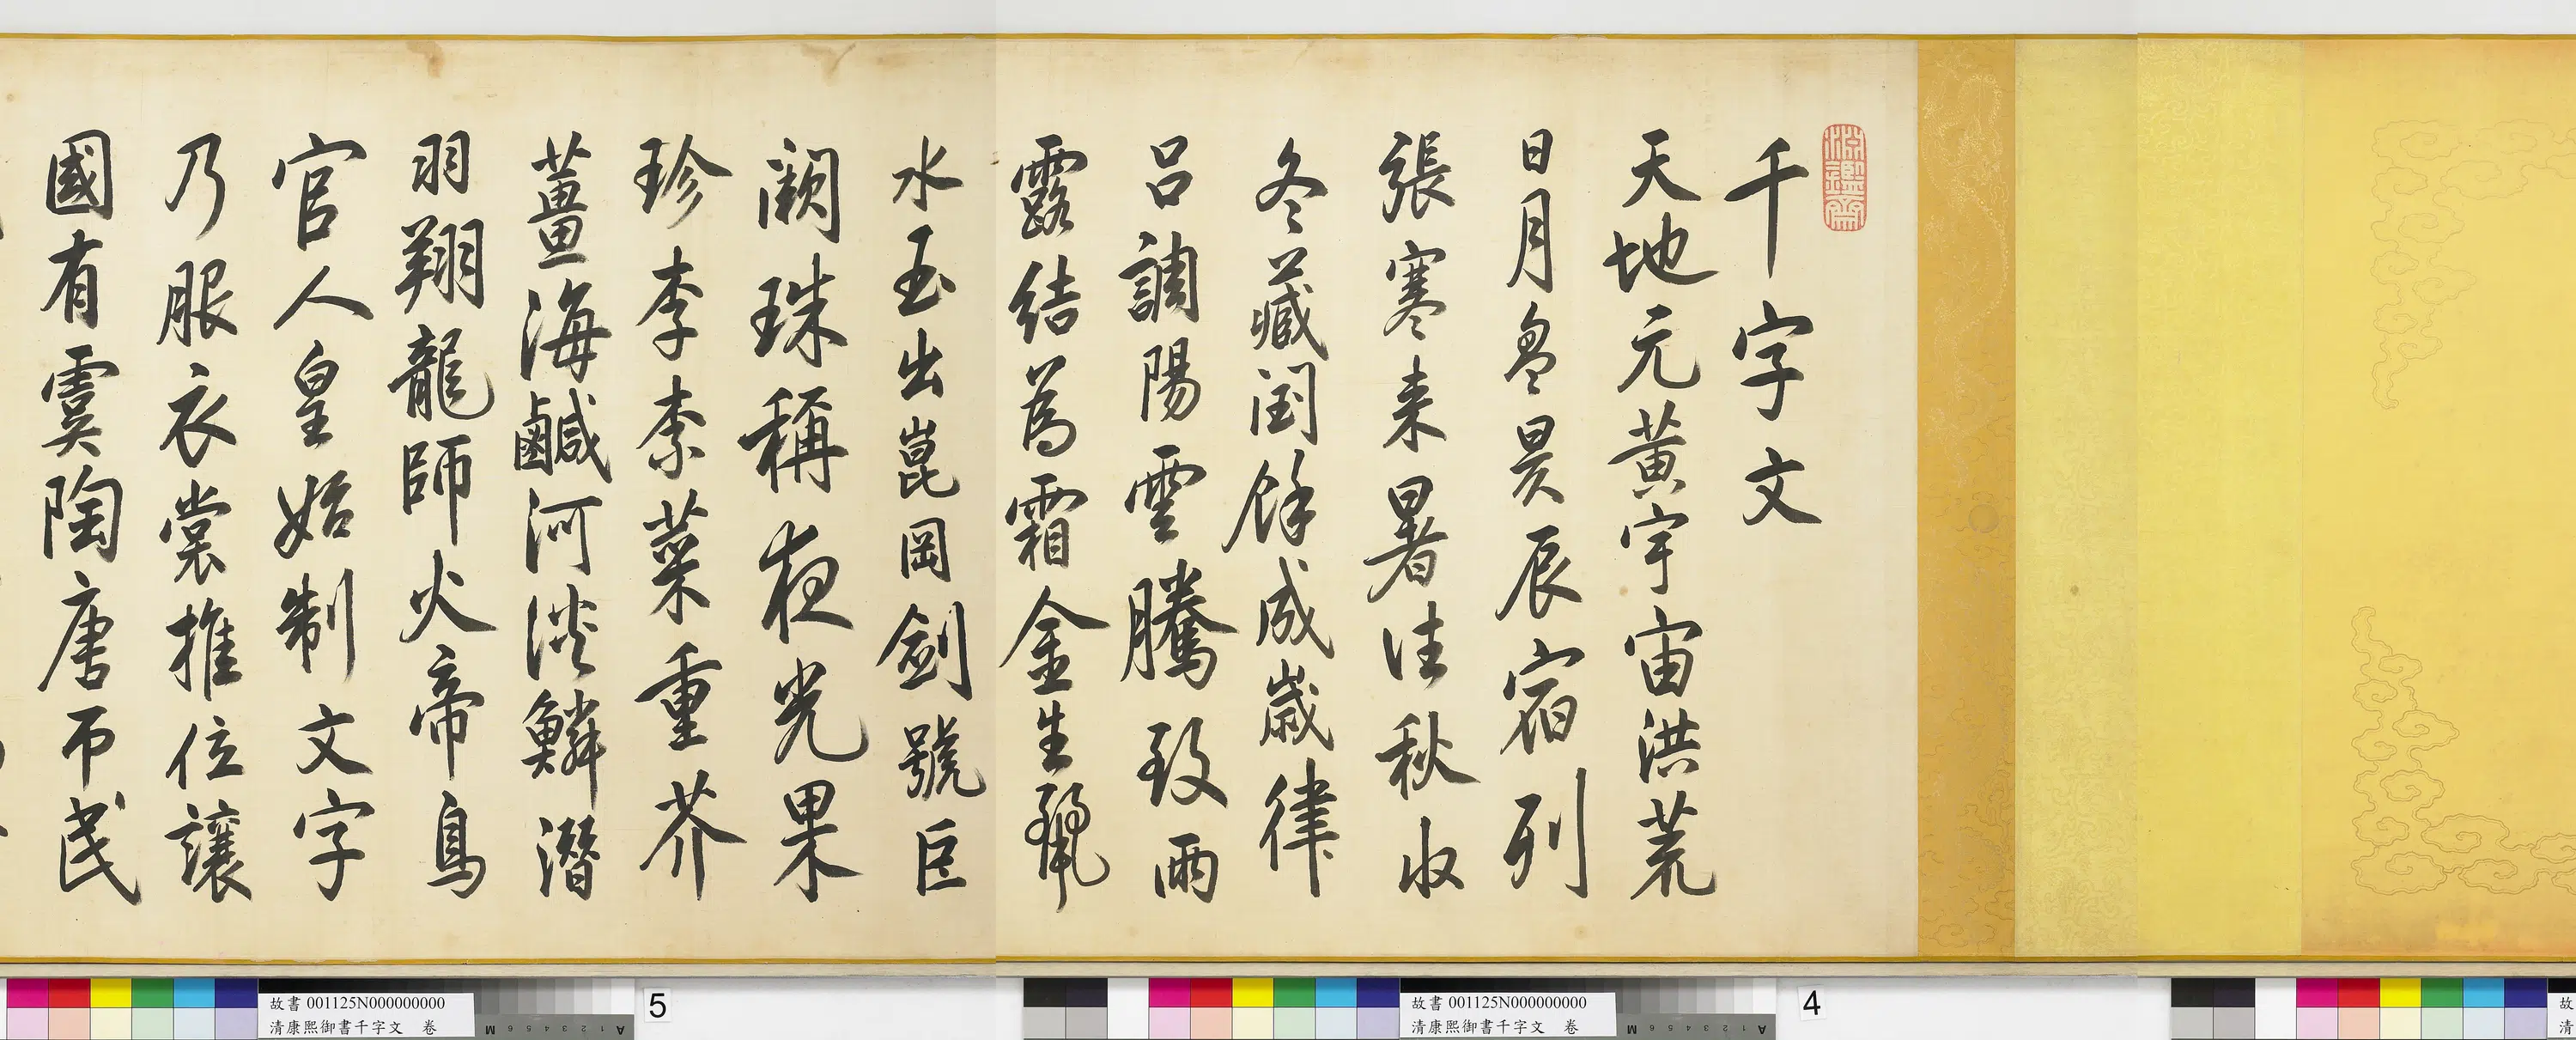 淵鑑齋
千字文
天地元黃宇宙洪荒
日月盈昃辰宿列
張寒来暑往秋收
冬藏閏餘成歲律
呂調陽雲騰致雨
露結為霜金生麗
水玉出崑岡劍號巨
闕珠稱夜光果
珍李柰菜重芥
薑海鹹河淡鱗潛
羽翔龍師火帝鳥
官人皇始制文字
乃服衣裳推位讓
國有虞陶唐弔民
故書 001125N000000000
清康熙御書千字文 卷
5
故書 001125N000000000
清康熙御書千字文 卷
4
故
清